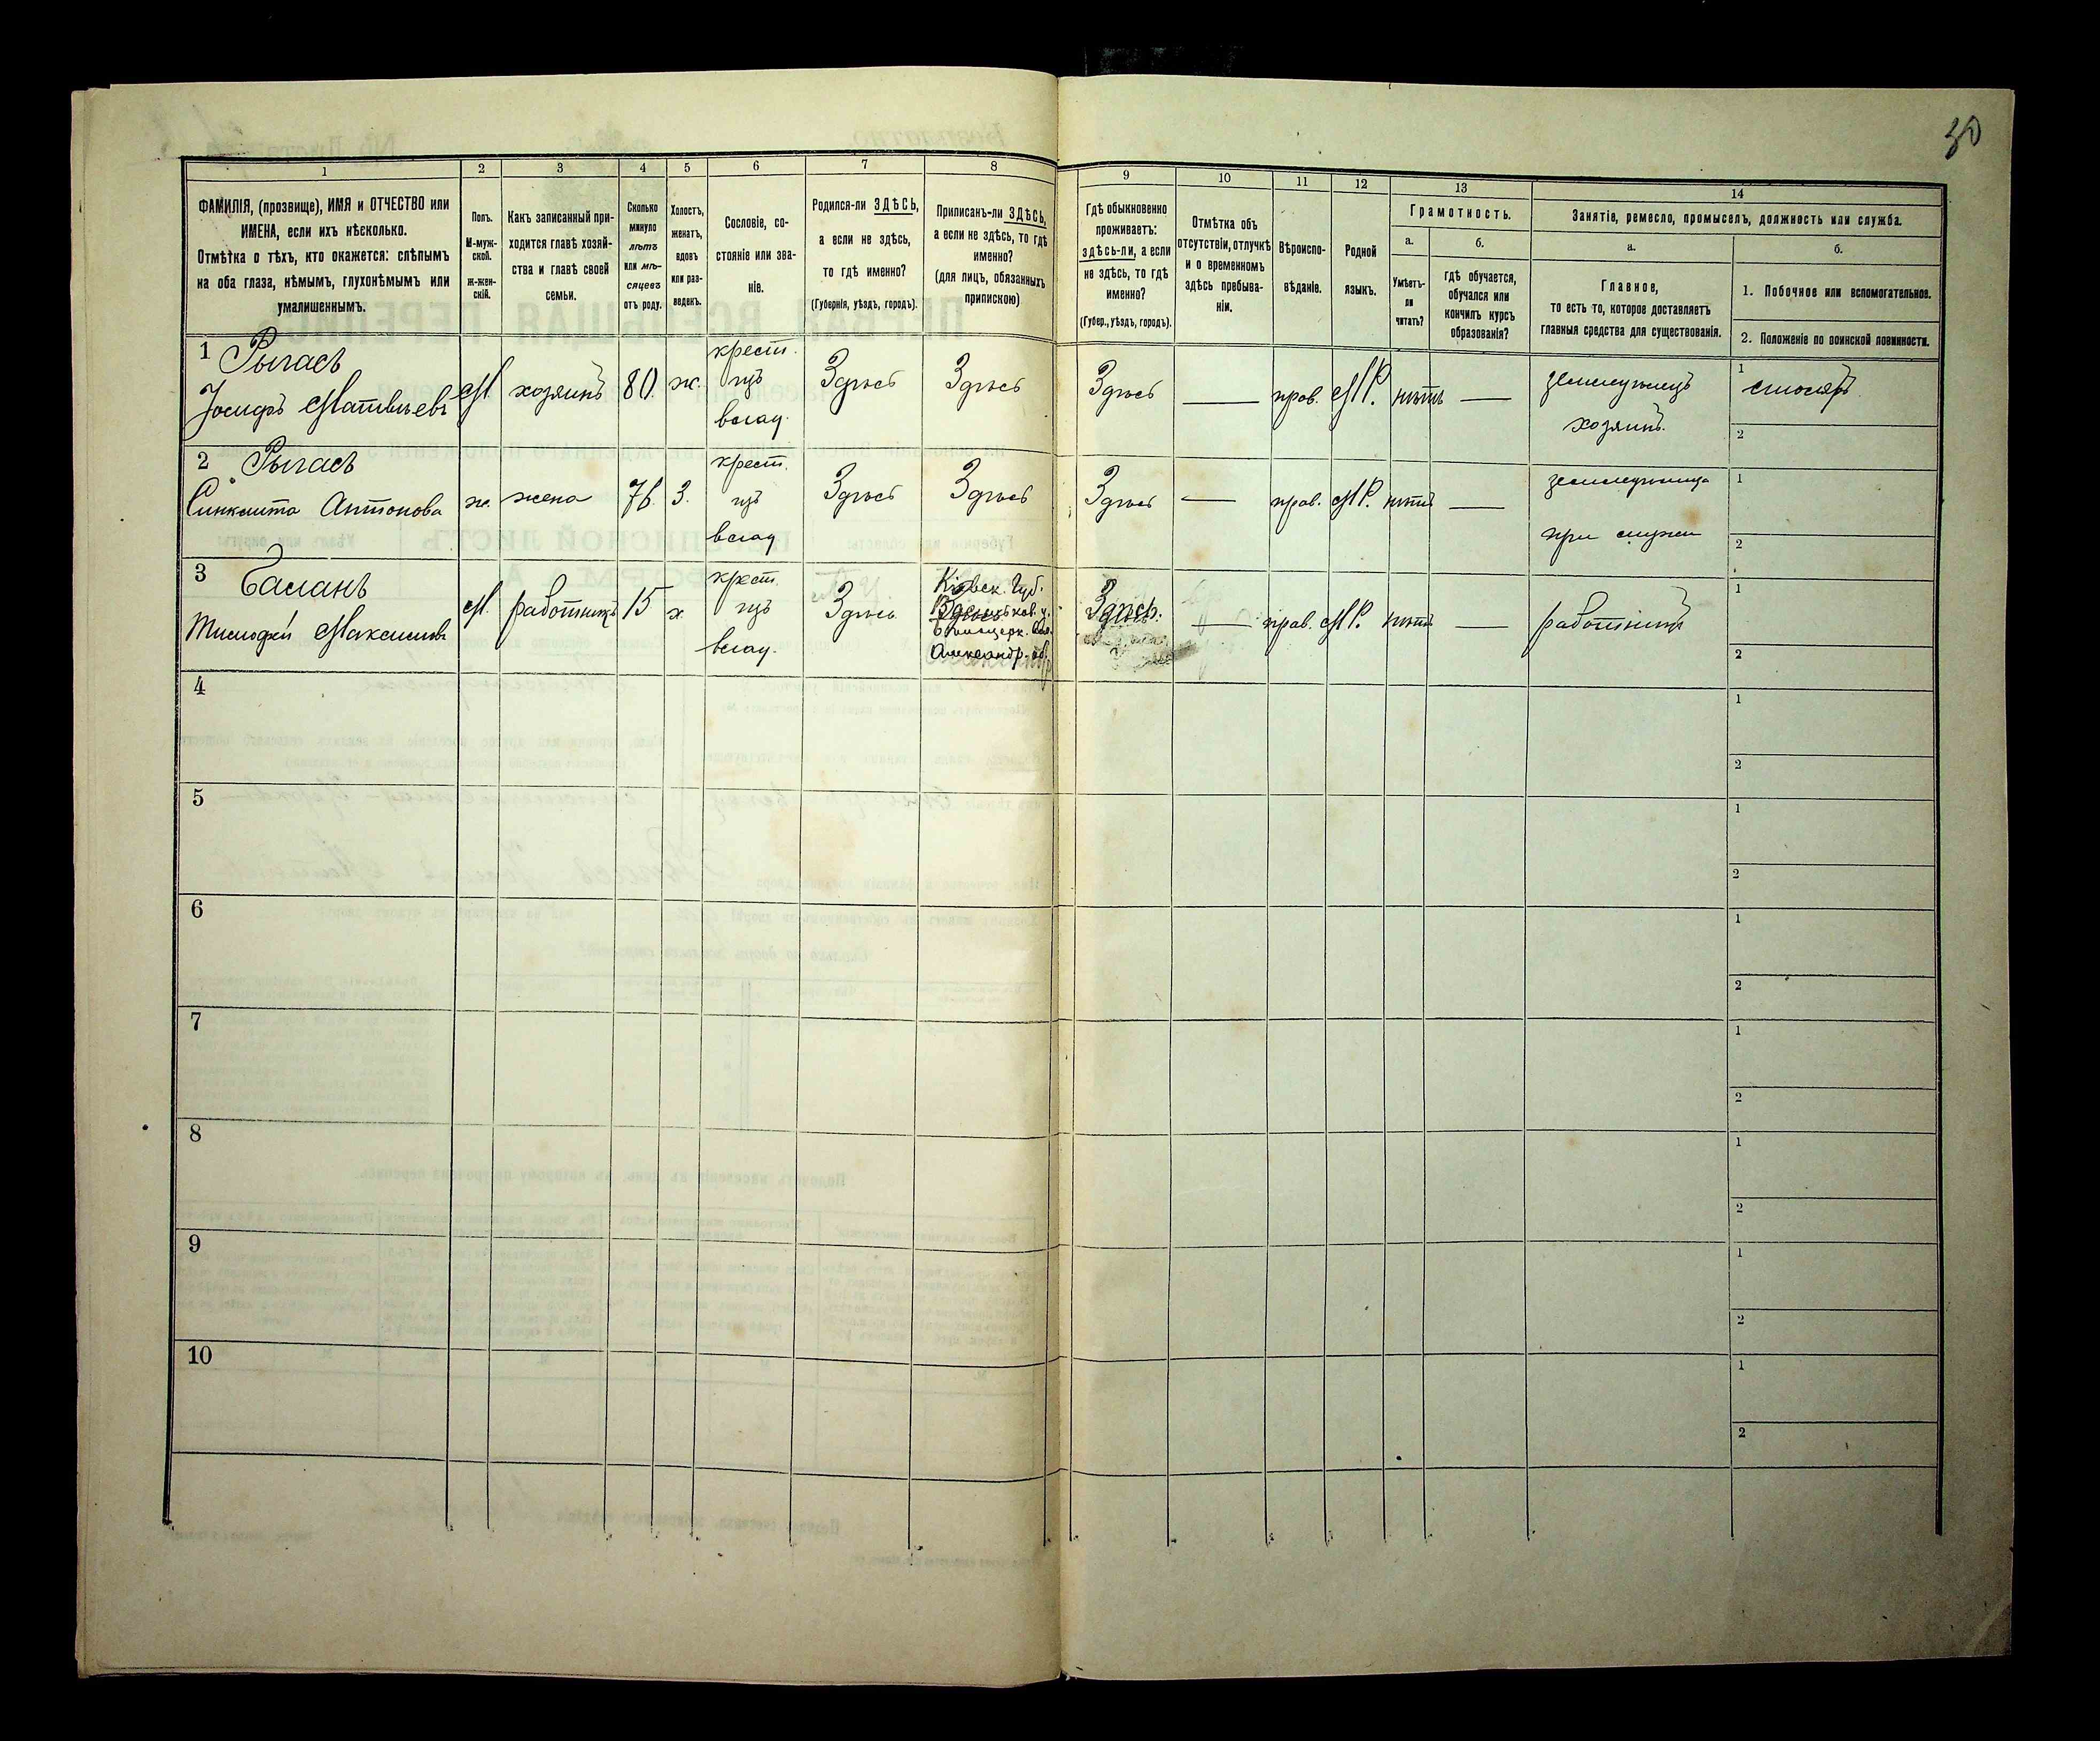 30
1 2 3 4 5 6 7 8 9 10 11 12 13 14
ФАМИЛІЯ, (прозвище), ИМЯ и ОТЧЕСТВО или
ИМЕНА, если ихъ нѣсколько.
Отмѣтка о тѣхъ, кто окажется: слѣпымъ
на оба глаза, нѣмымъ, глухонѣмымъ или
умалишеннымъ.
Полъ.
М-муж-
ской.
ж-жен-
скій.
Какъ записанный при-
ходится главѣ хозяй-
ства и главѣ своей
семьи.
Сколько
минуло
лѣтъ
или мѣ-
сяцевъ
отъ роду.
Холостъ,
женатъ,
вдовъ
или раз-
веденъ.
Сословіе, со-
стояніе или зва-
ніе.
Родился-ли ЗДѢСЬ,
а если не здѣсь,
то гдѣ именно?
(Губернія, уѣздъ, городъ).
Приписанъ-ли ЗДѢСЬ,
а если не здѣсь, то гдѣ
именно?
(для лицъ, обязанныхъ
припискою)
Гдѣ обыкновенно
проживаетъ:
здѣсь-ли, а если
не здѣсь, то гдѣ
именно?
(Губер., уѣздъ, городъ).
Отмѣтка объ
отсутствіи, отлучкѣ
и о временномъ
здѣсь пребыва-
ніи.
Вѣроиспо-
вѣданіе.
Родной
языкъ.
Грамотность.
а.
Умѣетъ-
ли
читать?
б.
гдѣ обучается,
обучался или
кончилъ курсъ
образованія?
Занятіе, ремесло, промыселъ, должность или служба.
а.
Главное,
то есть то, которое доставляетъ
главныя средства для существованія.
б.
1. Побочное или вспомогательное.
2. Положеніе по воинской повинности.
1 Рыгасъ
Іосифъ Матвѣевъ М хозяинъ 80. ж.
крест.
изъ
влад.
Здѣсь Здѣсь Здѣсь — прав. М.Р. нѣтъ —
земледѣлецъ
хозяинъ.
1 столяръ
2
2 Рыгасъ
Антонова ж. жена 76. З.
крест.
изъ
влад
Здѣсь Здѣсь Здѣсь — прав. М.Р. нѣтъ —
при мужѣ
1
2
3 Баланъ
М. работникъ 15 х
крест.
изъ
влад.
Здѣсь
Кіевск. Губ.
Александр.
Здѣсь. — прав. М.Р. нѣтъ — работникъ
1
2
4
1
2
5
1
2
6
1
2
7
1
2
8
1
2
9
1
2
10
1
2